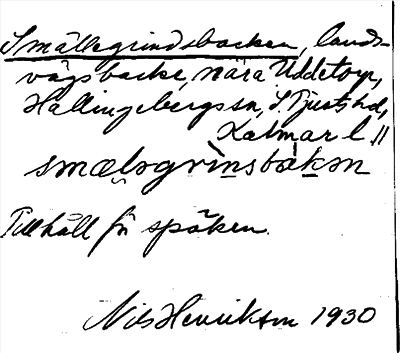 Smällegrindsbacken, lands-
vägsbacke, nära Uddetorp,
Hallingebergs sn, S. Tjusts hd,
Kalmar l.
smælogrìnsbakən
Tillhåll för spöken.
Nils Henrikson 1930